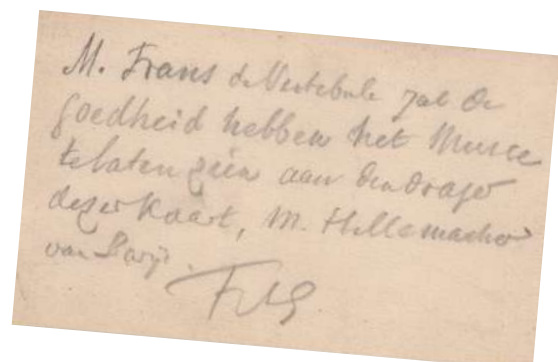 M. Frans de Vestibule zal de
goedheid hebben het Musee
te laten zien aan den drager
dezer Kaart, M. Hillemacher
van Parijs.